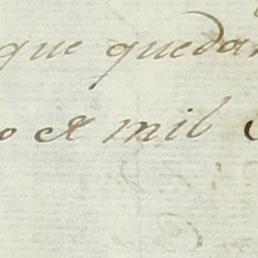 que quedar
o de mil